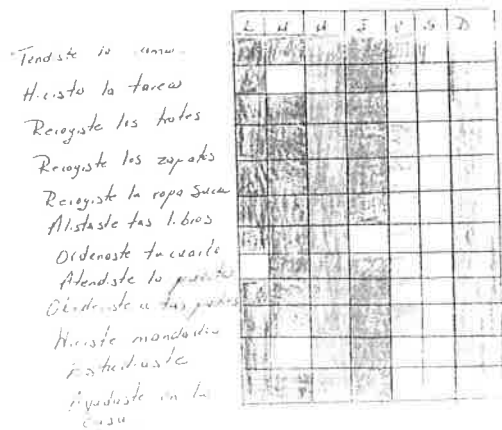 L M M J V S D
Tendiste la cama
Hiciste la tarea
Recogiste los trates
Recogiste los zapatos
Recogiste la ropa sucia
Alistaste tus libros
Ordenaste tu cuarto
Atendiste la
Obedeciste a tus padres
Hiciste mandados
Estudiaste
Ayudaste en la
casa